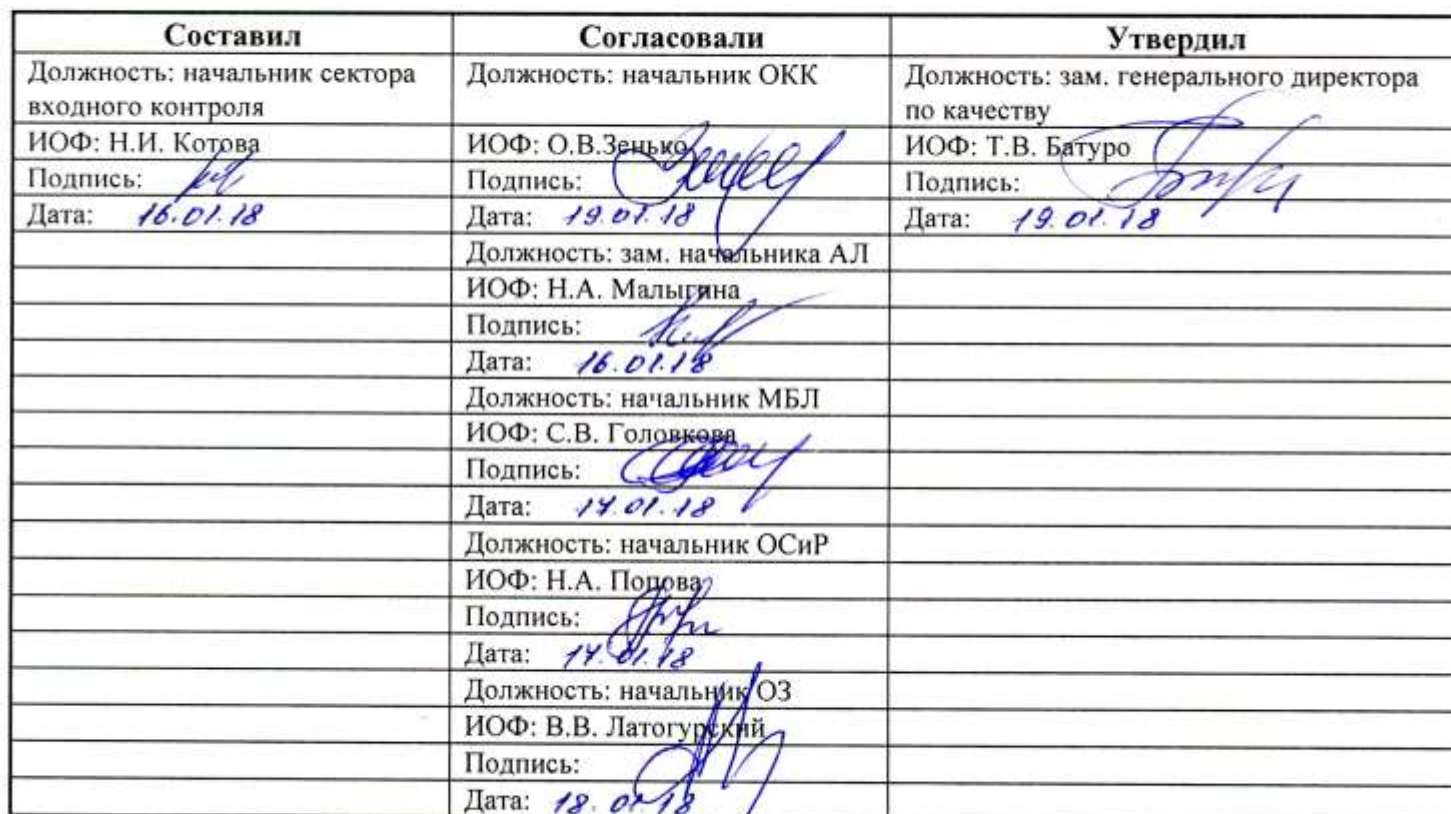 Составил Согласовали Утвердил
Должность: начальник сектора Должность: начальник ОКК Должность: зам. генерального директора
входного контроля по качеству
ИОФ: Н.И. Котова ИОФ: О.В.Зенько ИОФ: Т.В. Батуро
Подпись: Подпись: Подпись:
Дата: 16.01.18 Дата: 19.01.18 Дата: 19.01.18
Должность: зам. начальника АЛ
ИОФ: Н.А. Малыгина
Подпись:
Дата: 16.01.18
Должность: начальник МБЛ
ИОФ: С.В. Головкова
Подпись:
Дата: 17.01.18
Должность: начальник ОСиР
ИОФ: Н.А. Попова
Подпись:
Дата: 17.01.18
Должность: начальник ОЗ
ИОФ: В.В. Латогурский
Подпись:
Дата: 18.01.18